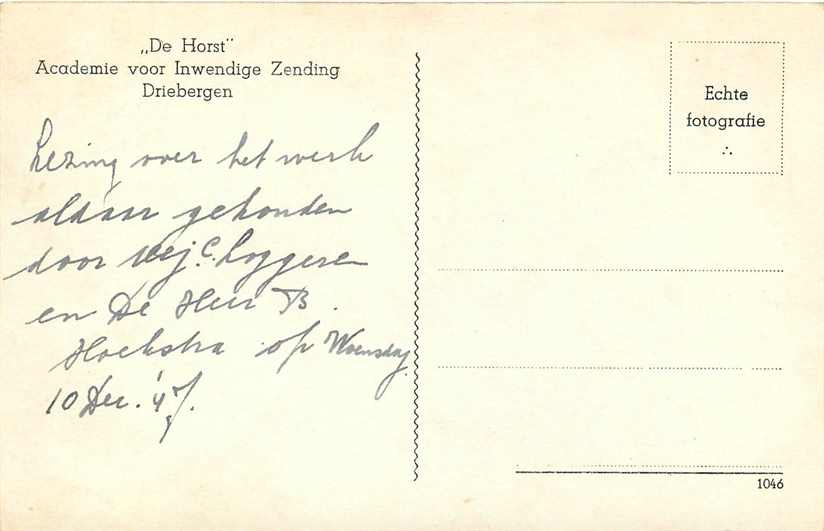 „De Horst"
Academie voor Inwendige Zending
Driebergen
Lezing over het werk
aldaar gehouden
door Mej. C. Loggeren
en De Heer B.
Hoekstra op Woensdag
10 Dec. '47.
Echte
fotografie
1046